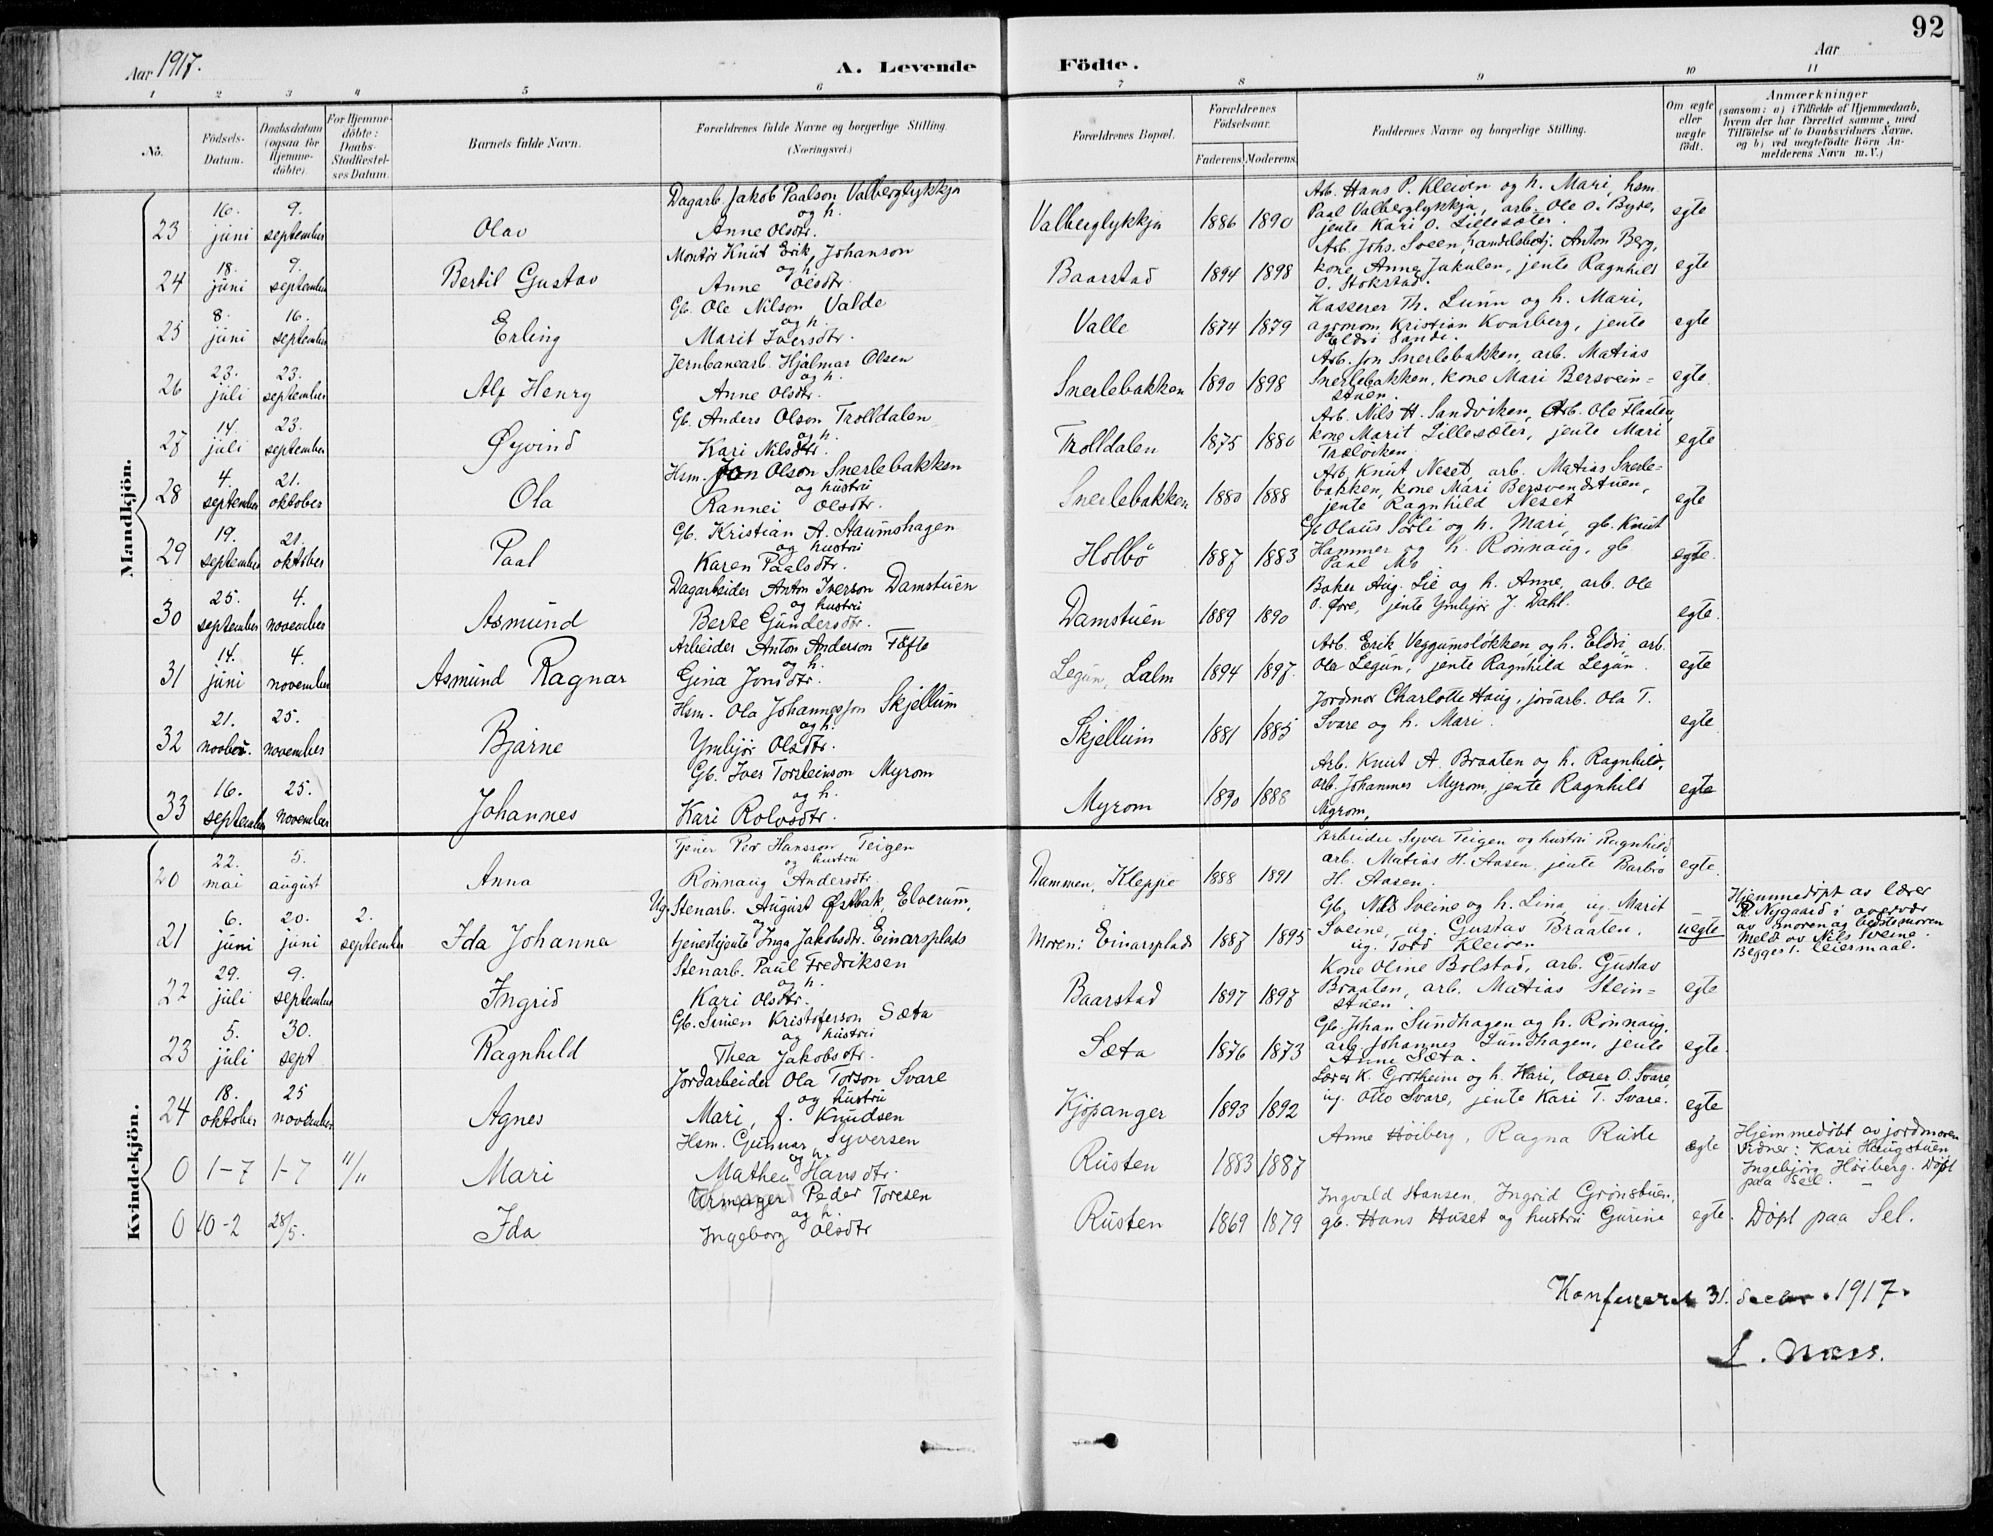 92
Aar 1917.
A. Levende Födte.
Aar
1 2 3 4 5 6 7 8 9 10 11
No.
Födsels-Datum.
Daabsdatum (ogsaa for Hjemme-döbte).
For Hjemme-döbte: Daabs-Stadfæstel-ses Datum.
Barnets fulde Navn.
Forældrenes fulde Navne og borgerlige Stilling.
(Næringsvei.)
Forældrenes Bopæl.
Forældrenes Födselsaar.
Faderens. Moderens.
Faddernes Navne og borgerlige Stilling.
Om ægte eller uægte födt.
Anmærkninger
(saasom: a) i Tilfælde af Hjemmedaab, hvem der har forrettet samme, med Tilföielse af to Daabsvidners Navne, og b) ved uægtefödte Börn An-melderens Navn m. V.)
Mandkjön.
23 16. juni 9. september Olav Dagarb. Jakob Paalson Valberglykkja og h. Anne Olsdtr. Valberglykkja 1886 1890 Arb. Hans P. Kleiven og h. Mari, hsm. Paal Valberglykkja, arb. Ole O. Byre, jente Kari O. Lillesæter. egte
24 18. juni 9. september Bertil Gustav Montør Knut Erik Johanson og h. Anne Olsdtr. Baarstad 1894 1898 Arb. Johs. Sveen, handelsbetj. Anton Berg, kone Anne Jakulen, jente Ragnhild O. Stokstad. egte
25 8. juni 16. september Erling Gb. Ole Nilson Valde og h. Marit Iversdtr. Valle 1874 1879 Kasserer Th. Lunn og h. Mari, agronom Kristian Kvarberg, jente Eldri Sande. egte
26 23. juli 23. september Alf Henry Jernbanearb. Hjalmar Olsen og h. Anne Olsdtr. Snerlebakken 1890 1898 Arb. Jon Snerlebakken, arb. Matias Snerlebakken, kone Mari Bersvein=stuen. egte
27 14. juli 23. september Øyvind Gb. Anders Olson Trolldalen og h. Kari Nilsdtr. Trolldalen 1875 1880 Arb. Nils H. Sandviken, Arb. Ole Flaaten, kone Marit Lillesæter, jente Mari Trælviken. egte
28 4. september 21. oktober Ola Hsm. Jon Olson Snerlebakken og hustru Rannei Olsdtr. Snerlebakken 1880 1888 Arb. Knut Neset, arb. Matias Snerle=bakken, kone Mari Bersvendstuen, jente Ragnhild Neset egte
29 19. september 21. oktober Paal Gb. Kristian A. Staumshagen og hustru Karen Paalsdtr. Holbö 1887 1883 Gb Olaus Sörli og h. Mari, gb. Knut Hammer og h. Rönnaug, gb Paal Mo egte.
30 25. september 4. november Asmund Dagarbeider Anton Iverson Damstuen og hustru Berte Gundersdtr. Damstuen 1889 1890 Baker Aug. Lie og h. Anne, arb. Ole O. Øvre, jente Ymbjör J. Dahl. egte.
31 14. juni 4. november Asmund Ragnar Arbeider Anton Anderson Töfte og h. Gina Jonsdtr. Legun, Lalm 1894 1897. Arb. Erik Veggumslökken og h. Eldri, arb. Ola Legun, jente Ragnhild Legun. egte
32 21. novbr. 25. november Bjarne Hsm. Ola Johannesson Skjellum og h. Ymbjör Olsdtr. Skjellum 1881 1885 Jordmor Charlotte Haug, jordarb. Ola T. Svare og h. Mari. egte
33 16. september 25. november Johannes Gb. Iver Torsteinson Myrom og h. Kari Rolvsdtr. Myrom 1890 1888 Arb. Knut A. Braaten og h. Ragnhild, arb. Johannes Myrom, jente Ragnhild Myrom. egte
Kvindekjön.
20 22. mai 5. august Anna Tjener Per Hansson Teigen og hustru Rönnaug Andersdtr. Dammen, Kleppe 1888 1891 Arbeider Syver Teigen og hustru Ragnhild arb. Matias H. Aasen, jente Barbro H. Aasen. egte
21 6. juni 20. juni 2. september Ida Johanna Ug. Stenarb. August Østbak, Elverum, tjenestjente Inga Jakobsdtr. Einarsplads Moren: Einarsplads 1887 1895 Gb. Nils Sveine og h. Lina, ug. Marit Sveine, ug. Gustav Braaten, ug. Tord Kleiven uegte Hjemmedöpt av lærer R. Nygaard i overvær av moren og bestemoren Meldt av Nils Sveine. Begges 1. leiermaal.
22 29. juli 9. september Ingrid Stenarb. Paul Fredriksen og h. Kari Olsdtr. Baarstad 1897 1897 Kone Oline Bolstad, arb. Gustav Braaten, arb. Matias Stein=stuen egte
23 5. juli 30. sept Ragnhild Gb. Simen Kristoferson Sæta og hustru Thea Jakobsdtr. Sæta 1876 1873 Gb. Johan Sundhagen og h. Rönnaug, arb. Johannes Sundhagen, jente Anne Sæta. egte
24 18. oktober 25 november Agnes Jordarbeider Ola Torson Svare og hustru Mari, f. Knudsen Kjöpanger 1893 1892 Lærer K. Grotheim og h. Kari, lærer O. Svare, ug. Otto Svare, jente Kari T. Svare. egte
0 1-7 1-7 "/" Mari Hsm. Gunnar Syversen og h. Mathea Hansdtr. Rusten 1883 1887 Anne Höiberg, Ragna Ruste egte Hjemmedöbt av jordmoren Vidner: Kari Haugstuen Ingebjörg Höiberg. Döpt paa Sel.
0 10-2 28/5. Ida Urmager Peder Toresen og h. Ingeborg Olsdtr Rusten 1869 1879 Ingvald Hansen, Ingrid Grönstuen, gb. Hans Huset og hustru Gurine egte. Döpt paa Sel.
Konfereret 31. decbr. 1917.